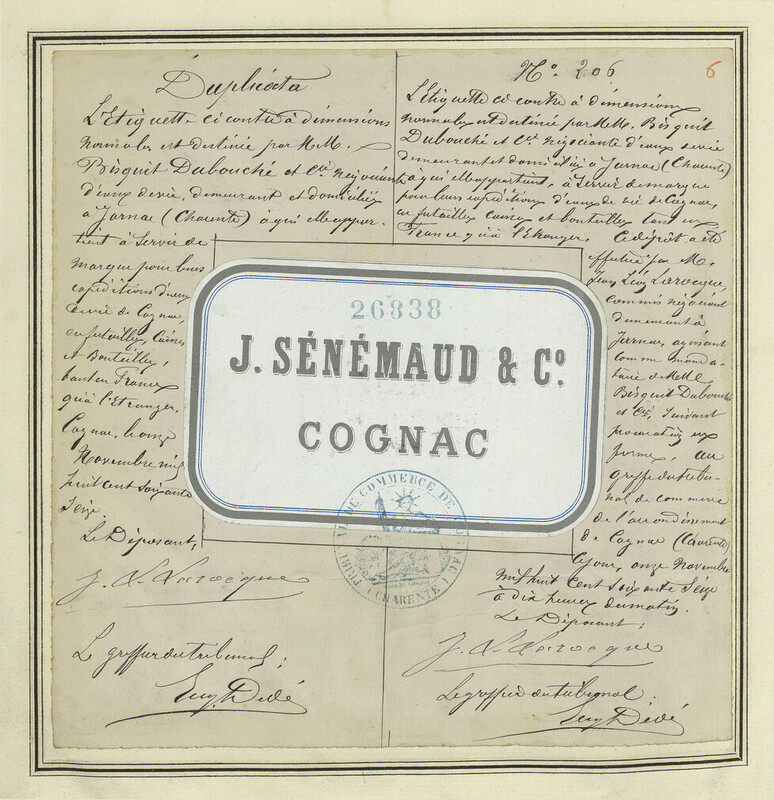 Duplicata
L'Etiquette ci contre à dimensions
normales est destinée par M.M.
Bisquit Dubouché et Cie négociants
d'eaux de vie, demeurant et domiciliés
à Jarnac (Charente) à qui elle appar-
tient à Servir de
marque pour leurs
expéditions d'eaux
de vie de Cognac
en futailles, Caisses
et Bouteilles,
tant en France
qu'à l'étranger.
Cognac, le onze
Novembre mil
huit cent soixante
Seize.
Le Déposant,
J. L. Larocque
Le greffier du tribunal;
Eug. Dédé
No. 206
6
L'Etiquette ci contre à dimensions
normales est destinée par M.M. Bisquit
Dubouché et Cie négociants d'eaux de vie
demeurant et domiciliés à Jarnac (Charente)
à qui elle appartient, à Servir de marque
pour leurs expéditions d'eaux de vie de Cognac,
en futailles caisses et bouteilles tant en
France qu'à l'étranger.
Ce dépôt a été
effectué par M.
Jean Léon Larocque,
commis négociant
demeurant à
Jarnac, agissant
comme manda-
taire de M.M.
Bisquit Dubouché
et Cie, suivant
procuration en
forme, au
greffe du tribu-
nal de commerce
de l'arrondissement
de Cognac (Charente)
ce jour, onze Novembre
mil huit cent soixante Seize
à dix heures du matin.
Le Déposant;
J. L. Larocque
Le greffier du tribunal;
Eug. Dédé
26838
J. SÉNÉMAUD & Co.
COGNAC
TRIBAL DE COMMERCE DE COGNAC
(CHARENTE)